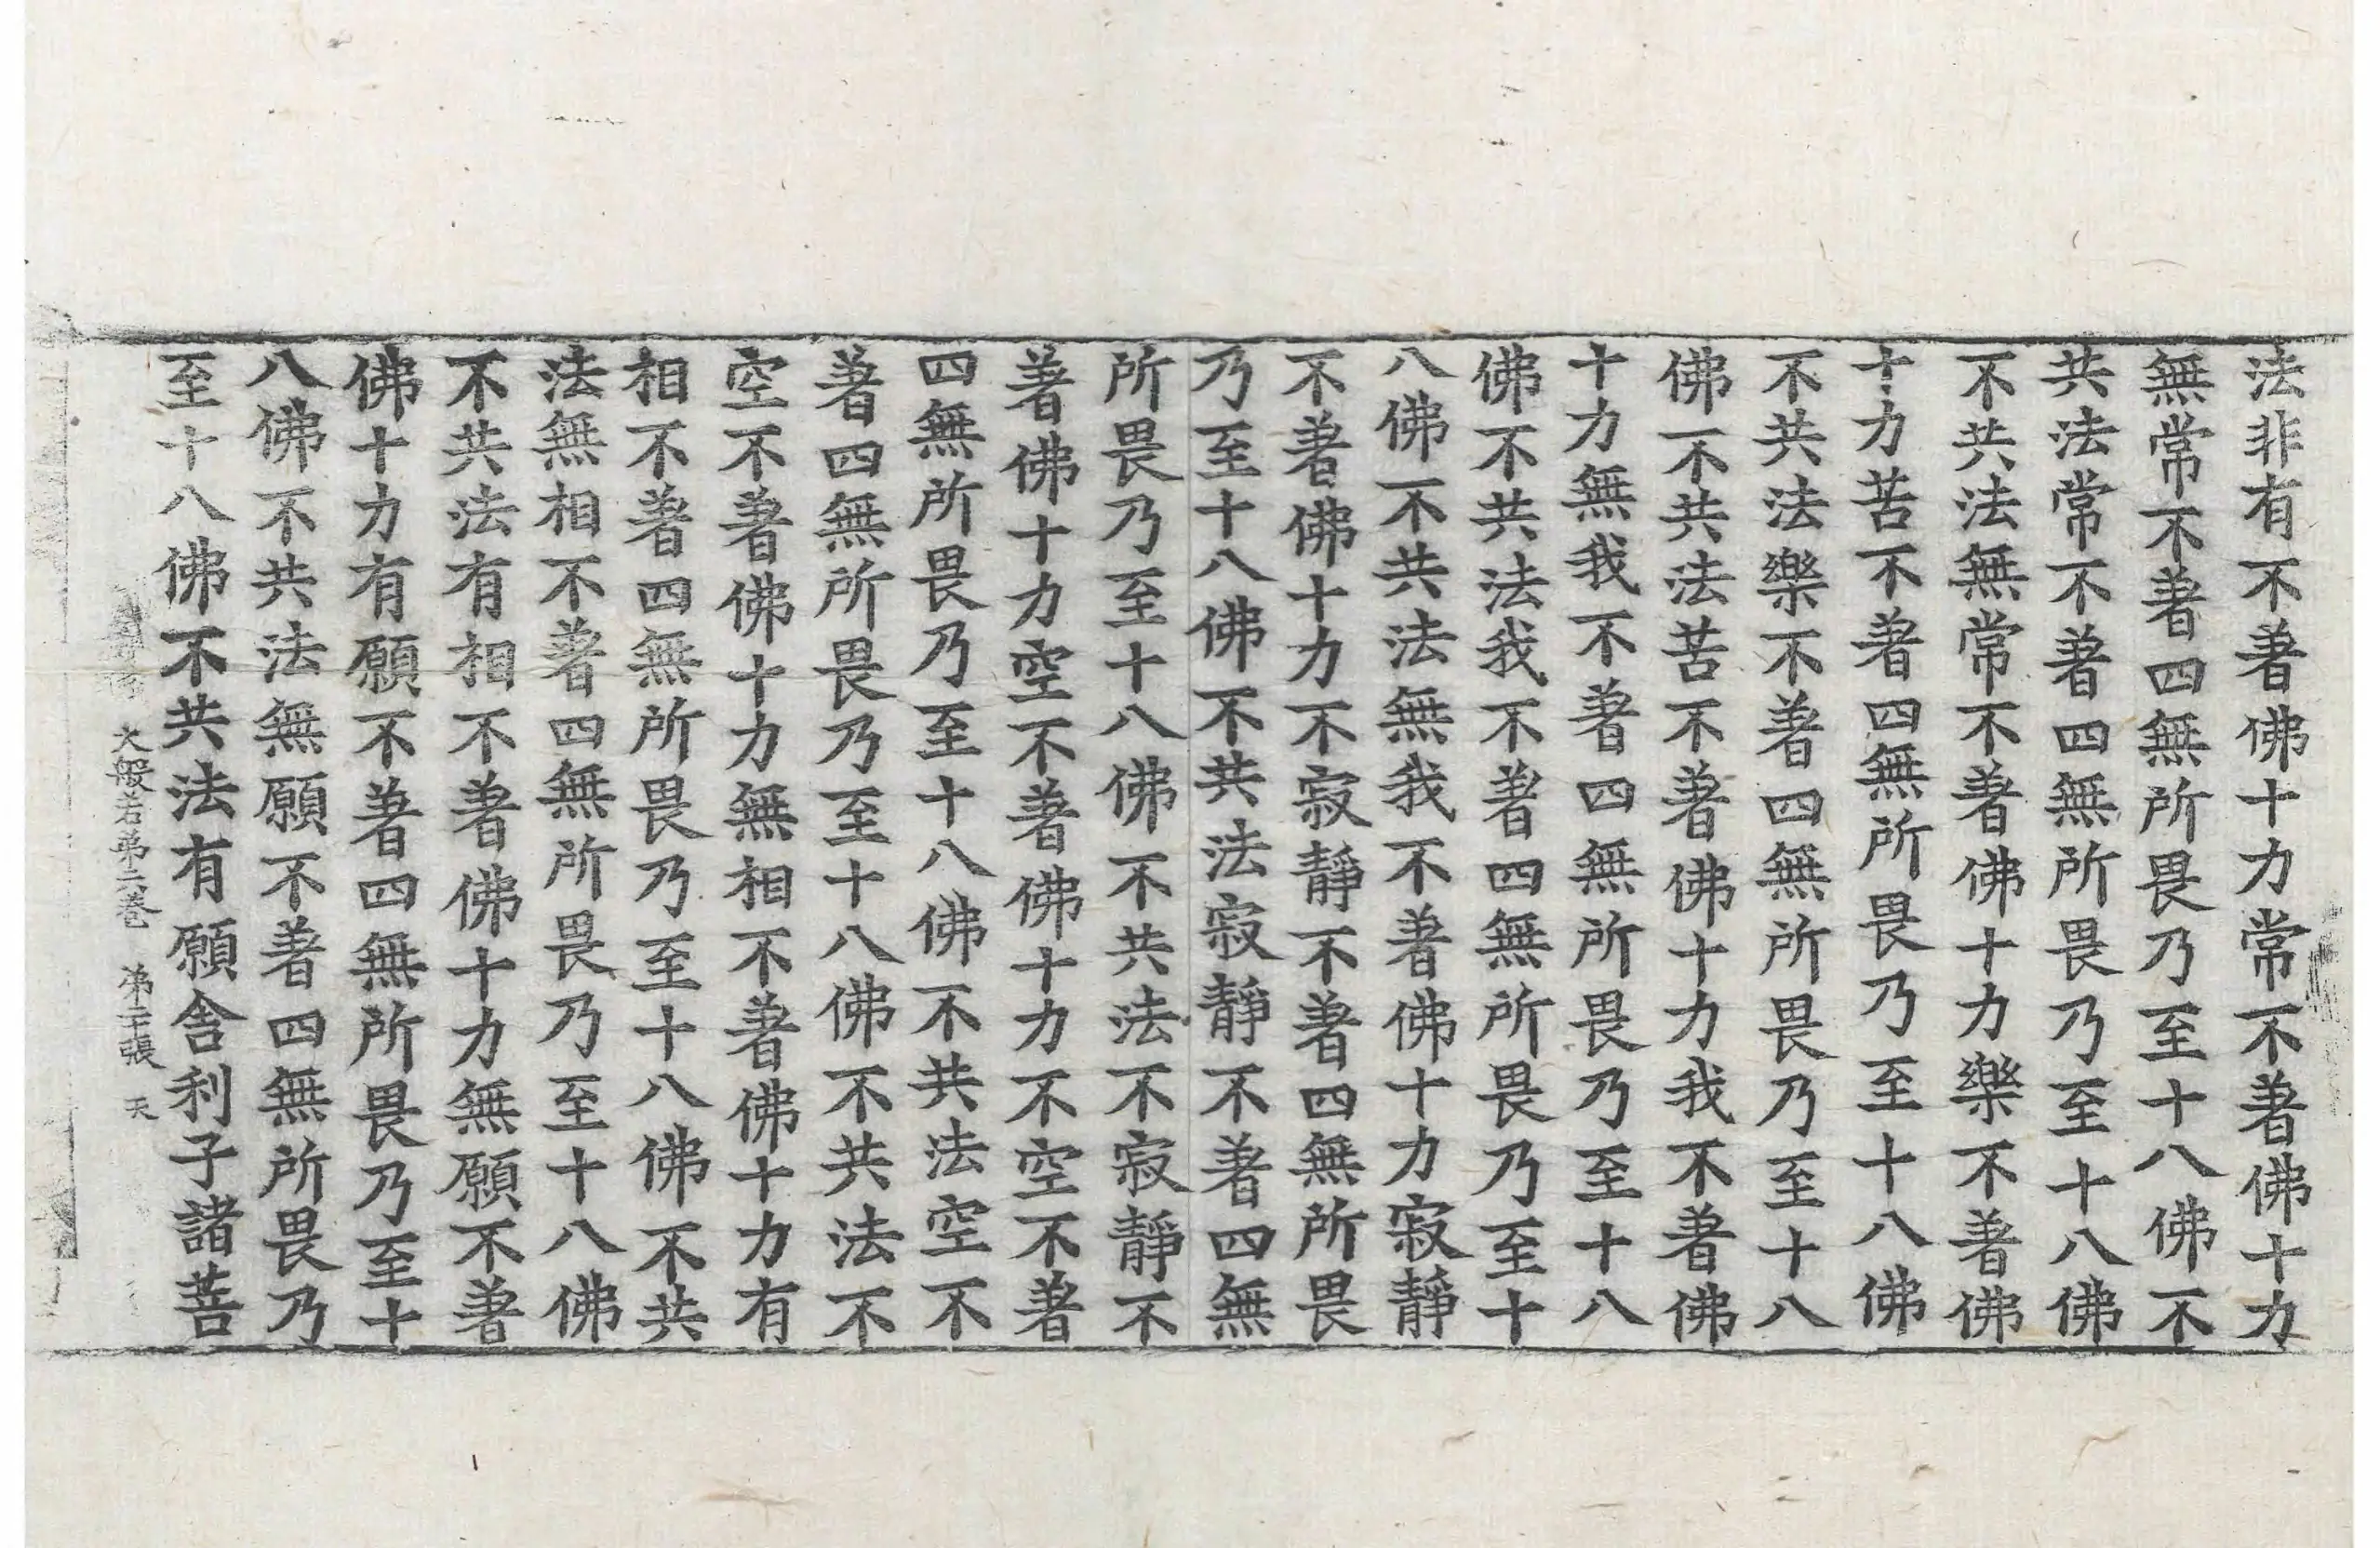 法非有不著佛十力常不著佛十力
無常不著四無所畏乃至十八佛不
共法常不著四無所畏乃至十八佛
不共法無常不著佛十力樂不著佛
十力苦不著四無所畏乃至十八佛
不共法樂不著四無所畏乃至十八
佛不共法苦不著佛十力我不著佛
十力無我不著四無所畏乃至十八
佛不共法我不著四無所畏乃至十
八佛不共法無我不著佛十力寂靜
不著佛十力不寂靜不著四無所畏
乃至十八佛不共法寂靜不著四無
所畏乃至十八佛不共法不寂靜不
著佛十力空不著佛十力不空不著
四無所畏乃至十八佛不共法空不
著四無所畏乃至十八佛不共法不
空不著佛十力無相不著佛十力有
相不著四無所畏乃至十八佛不共
法無相不著四無所畏乃至十八佛
不共法有相不著佛十力無願不著
佛十力有願不著四無所畏乃至十
八佛不共法無願不著四無所畏乃
至十八佛不共法有願舍利子諸菩
大般若 天